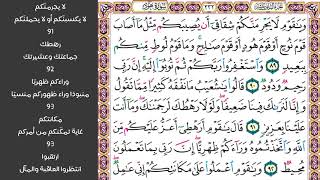 ٢٣٢
وَيَٰقَوْمِ لَا يَجْرِمَنَّكُمْ شِقَاقِىٓ أَن يُصِيبَكُم مِّثْلُ مَآ أَصَابَ
قَوْمَ نُوحٍ أَوْ قَوْمَ هُودٍ أَوْ قَوْمَ صَٰلِحٍ وَمَا قَوْمُ لُوطٍ مِّنكُم
بِبَعِيدٍ ٨٩ وَٱسْتَغْفِرُوا۟ رَبَّكُمْ ثُمَّ تُوبُوٓا۟ إِلَيْهِ إِنَّ رَبِّى
رَحِيمٌ وَدُودٌ ٩٠ قَالُوا۟ يَٰشُعَيْبُ مَا نَفْقَهُ كَثِيرًا مِّمَّا تَقُولُ
وَإِنَّا لَنَرَىٰكَ فِينَا ضَعِيفًا وَلَوْلَا رَهْطُكَ لَرَجَمْنَٰكَ وَمَآ أَنتَ
عَلَيْنَا بِعَزِيزٍ ٩١ قَالَ يَٰقَوْمِ أَرَهْطِىٓ أَعَزُّ عَلَيْكُم مِّنَ
ٱللَّهِ وَٱتَّخَذْتُمُوهُ وَرَآءَكُمْ ظِهْرِيًّا إِنَّ رَبِّى بِمَا تَعْمَلُونَ
مُحِيطٌ ٩٢ وَيَٰقَوْمِ ٱعْمَلُوا۟ عَلَىٰ مَكَانَتِكُمْ إِنِّى عَٰمِلٌ
لا يجرمنكم
لا يكسبنكم أو لا يحملنكم
91
رهطك
جماعتك وعشيرتك
92
وراءكم ظهريًا
منبوذا وراء ظهوركم منسيًا
93
مكانتكم
غاية تمكنكم من أمركم
93
ارتقبوا
انتظروا العاقبة والمآل